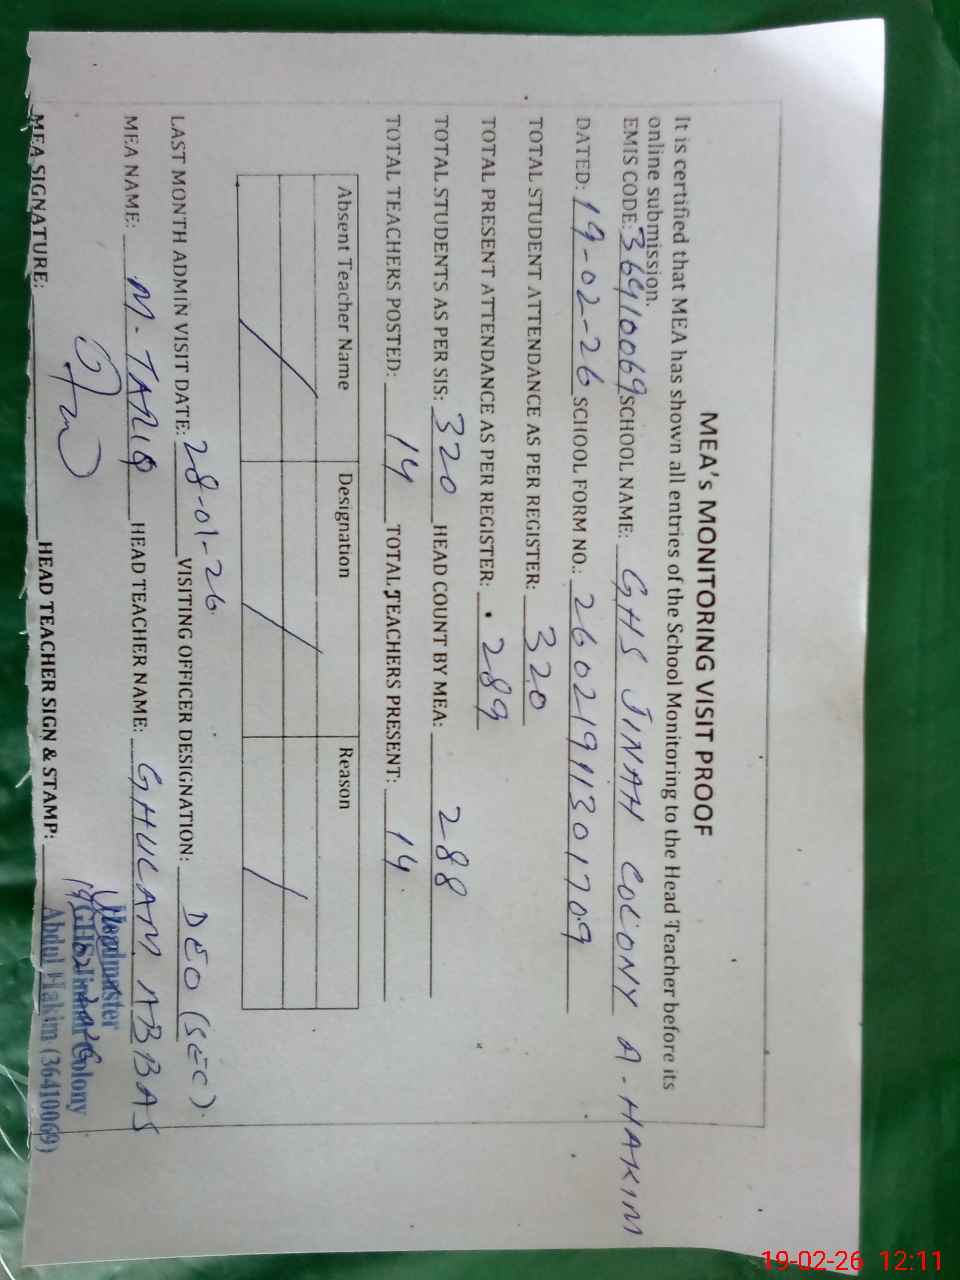 MEA's MONITORING VISIT PROOF
It is certified that MEA has shown all entries of the School Monitoring to the Head Teacher before its
online submission.
EMIS CODE: 36410069 SCHOOL NAME: GHS JINAH COLONY A-HAKIM
DATED: 19-02-26 SCHOOL FORM NO.: 2602191301709
TOTAL STUDENT ATTENDANCE AS PER REGISTER: 320
TOTAL PRESENT ATTENDANCE AS PER REGISTER: 289
TOTAL STUDENTS AS PER SIS: 320 HEAD COUNT BY MEA: 288
TOTAL TEACHERS POSTED: 14 TOTAL TEACHERS PRESENT: 14
Absent Teacher Name Designation Reason
LAST MONTH ADMIN VISIT DATE: 28-01-26 VISITING OFFICER DESIGNATION: DEO (SEC)
MEA NAME: M-TARIQ HEAD TEACHER NAME: GHULAM ABBAS
MEA SIGNATURE: HEAD TEACHER SIGN & STAMP:
Headmaster
GHS Jinnah Colony
Abdul Hakim (36410069)
19-02-26 12:11